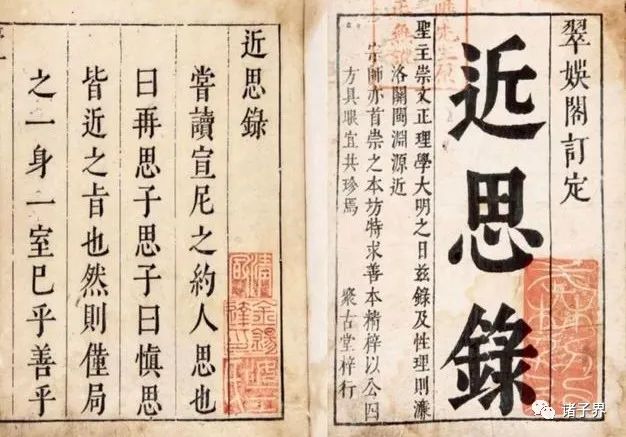 翠娛閣訂定
近思錄
聖主崇文正理學大明之日茲錄及性理則濂
洛關閩淵源近
宗師亦首崇之本坊特求善本精梓以公四
方具眼宜共珍焉 聚古堂梓行
近思錄
嘗讀宣尼之約人思也
曰再思子思子曰愼思
皆近之旨也然則僅局
之一身一室巳乎善乎
诸子界